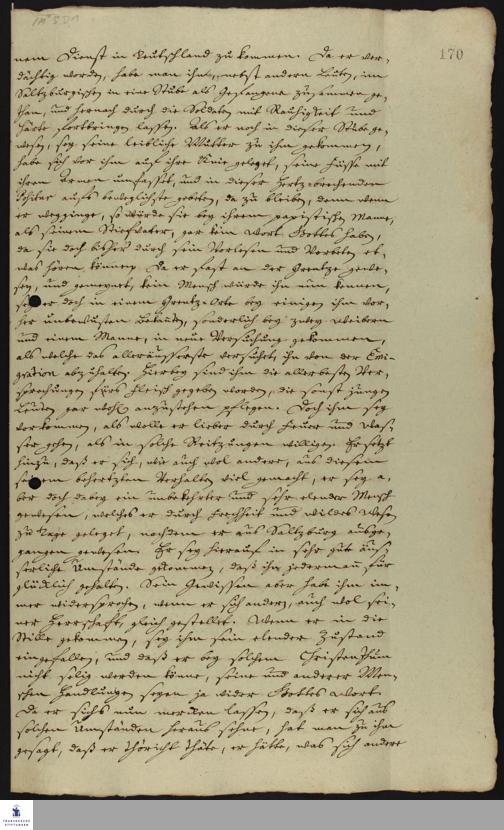 170
nem Dienst in Teutschland zu kommen. Da er ver-
dächtig worden, habe man ihn, nebst andern Leuten, im
Saltzburgischen in eine Stube als Gefangene zusammen ge-
than, und hernach durch die Soldaten mit Rauhigkeit und
Härte fortbringen lassen. Als er noch in dieser Stube ge-
wesen, sey seine leibliche Mutter zu ihm gekommen,
habe sich vor ihm auf ihre Knie geleget, seine Füsse mit
ihren Armen umfasset, und in dieser Hertz-brechenden
Positur aufs beweglichste gebeten, da zu bleiben, denn wenn
er wegginge, so würde sie bey ihrem papistischen Manne,
als seinem Stiefvater, gar kein Wort Gottes haben,
da sie doch bisher durch sein Vorlesen und Vorbeten et-
was hören können. Da er fast an der Grentze gewe-
sen, und gemeynet, kein Mensch würde ihn nun kennen,
sey er doch in einem Grentz-Orte bey einigen ihm vor-
her unbewusten Bekanten, sonderlich bey zwey Weibern
und einem Manne, in neue Versuchung gekommen,
als welche das alleräusserste versucht, ihn von der Emi-
gration abzuhalten. Hierbey sind ihm die allerbesten Ver-
sprechungen fürs Fleisch gegeben worden, die sonst jungen
Leuten gar wohl anzustehen pflegen. Doch ihm sey
vorkommen, als wolle er lieber durch Feuer und Was-
ser gehen, als in solche Reitzungen willigen. Er setzt
hinzu, daß er sich, wie auch wol andere, aus diesem
seinem behertzten Verhalten viel gemacht, er sey a-
ber doch dabey ein unbekehrter und sehr elender Mensch
gewesen, welches er durch Frechheit und wildes Wesen
zu Tage geleget, nachdem er aus Saltzburg ausge-
gangen gewesen. Er sey hierauf in sehr gute äus-
serliche Umstände gekommen, daß ihn jedermann für
glücklich gehalten. Sein Gewissen aber habe ihm im-
mer widersprochen, wenn er sich andern, auch wol sei-
ner Herrschaft, gleich gestellet. Wenn er in die
Stille gekommen, sey ihm sein elender Zustand
eingefallen, und daß er bey solchem Christenthum
nicht selig werden könne, seine und anderer Men-
schen Handlungen seyen ja wider Gottes Wort.
Da er sichs nun mercken lassen, daß er sich aus
solchen Umständen heraus sehne, hat man zu ihm
gesagt, daß er thöricht thäte, er hätte, was sich andere
FRANCKESCHE
STIFTUNGEN